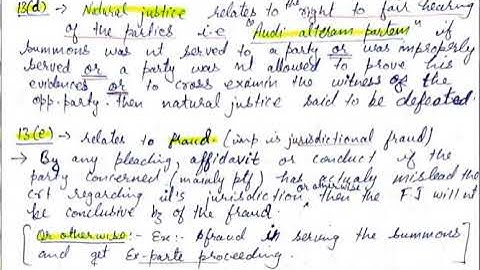 13(d) → Natural justice relates to the right to fair hearing
of the parties i.e "Audi alteram partem" if
summons was nt served to a party or was improperly
served or a party was nt allowed to prove his
evidences or to cross examin the witness of the
opp. party. then natural justice said to be defeated.
13(e) → relates to fraud. (imp. is jurisdictional fraud)
→ By any pleading, affidavit or conduct if the
party concerned (mainly ptf) has actualy mislead the
crt regarding it's jurisdiction or otherwise, then the FJ will nt
be conclusive bz of the fraud.
[Or otherwise:- Ex:- fraud in serving the summons
and get Ex-parte proceeding.]